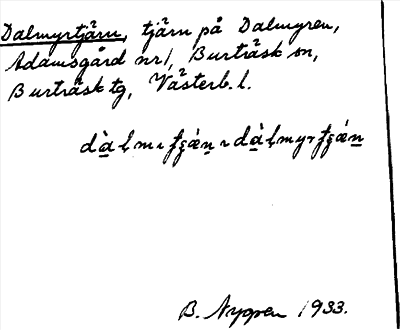 Dalmyrtjärn, tjärn på Dalmyren,
Adamsgård nr 1, Burträsk sn,
Burträsk tg, Västerb. l.
B. Nygren 1933.